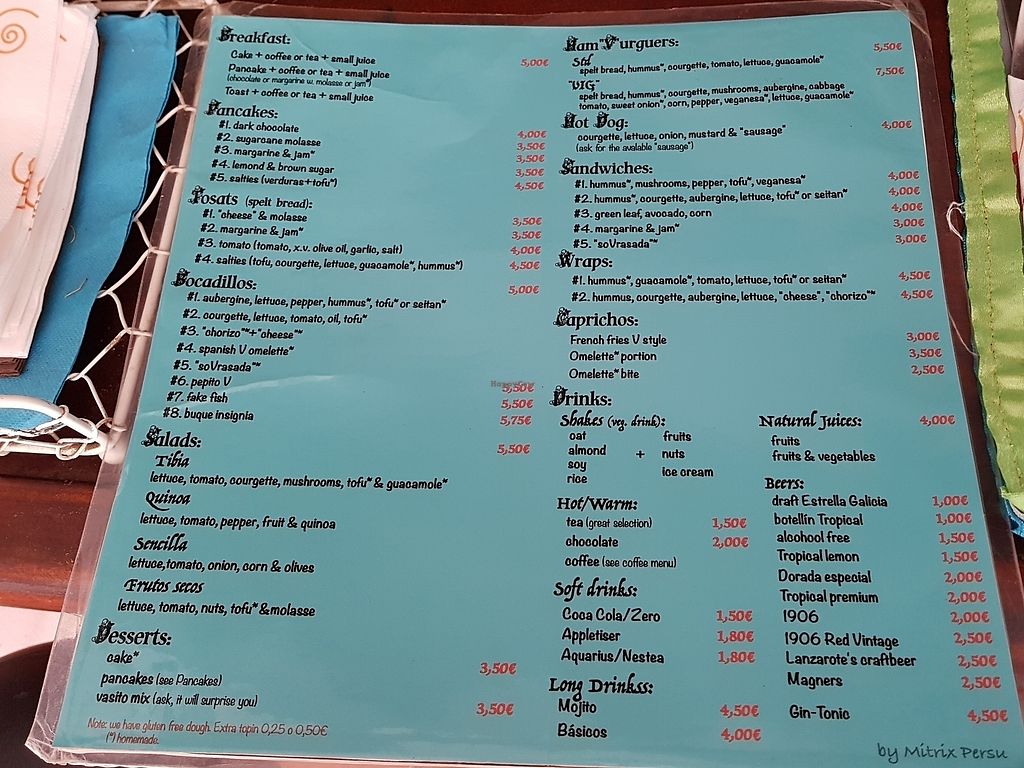 Breakfast:
5,00€
Cake + coffee or tea + small juice
Pancake + coffee or tea + small juice
(chocolate or margarine w. molasse or jam*)
Toast + coffee or tea + small juice
Pancakes:
#1. dark chocolate 4,00€
#2. sugarcane molasse 3,50€
#3. margarine & jam* 3,50€
#4. lemond & brown sugar 3,50€
#5. salties (verduras+tofu*) 4,50€
Tosats (spelt bread):
#1. "cheese" & molasse 3,50€
#2. margarine & jam* 3,50€
#3. tomato (tomato, x.v. olive oil, garlic, salt) 4,00€
#4. salties (tofu, courgette, lettuce, guacamole*, hummus*) 4,50€
Bocadillos: 5,00€
#1. aubergine, lettuce, pepper, hummus*, tofu* or seitan*
#2. courgette, lettuce, tomato, oil, tofu*
#3. "chorizo"*+"cheese"*
#4. spanish V omelette*
#5. "soVrasada"*
#6. pepito V 5,50€
#7. fake fish 5,50€
#8. buque insignia 5,75€
Salads: 5,50€
Tibia
lettuce, tomato, courgette, mushrooms, tofu* & guacamole*
Quinoa
lettuce, tomato, pepper, fruit & quinoa
Sencilla
lettuce,tomato, onion, corn & olives
Frutos secos
lettuce, tomato, nuts, tofu* &molasse
Desserts:
cake* 3,50€
pancakes (see Pancakes)
vasito mix (ask, it will surprise you) 3,50€
Note: we have gluten free dough. Extra topin 0,25 o 0,50€
(*) homemade.
Ham"V"urguers:
Std 5,50€
spelt bread, hummus*, courgette, tomato, lettuce, guacamole*
"VIG" 7,50€
spelt bread, hummus*, courgette, mushrooms, aubergine, cabbage
tomato, sweet onion*, corn, pepper, veganesa*, lettuce, guacamole*
Hot Dog: 4,00€
courgette, lettuce, onion, mustard & "sausage"
(ask for the avalable "sausage")
Sandwiches:
#1. hummus*, mushrooms, pepper, tofu*, veganesa* 4,00€
#2. hummus*, courgette, aubergine, lettuce, tofu* or seitan* 4,00€
#3. green leaf, avocado, corn 4,00€
#4. margarine & jam* 3,00€
#5. "soVrasada"* 3,00€
Wraps:
#1. hummus*, guacamole*, tomato, lettuce, tofu* or seitan* 4,50€
#2. hummus, courgette, aubergine, lettuce, "cheese", "chorizo"* 4,50€
Caprichos:
French fries V style 3,00€
Omelette* portion 3,50€
Omelette* bite 2,50€
Drinks:
Shakes (veg. drink): 4,00€
oat fruits
almond + nuts
soy ice cream
rice
Hot/Warm:
tea (great selection) 1,50€
chocolate 2,00€
coffee (see coffee menu)
Soft drinks:
Coca Cola/Zero 1,50€
Appletiser 1,80€
Aquarius/Nestea 1,80€
Long Drinkss:
Mojito 4,50€
Básicos 4,00€
Natural Juices:
fruits
fruits & vegetables
Beers:
draft Estrella Galicia 1,00€
botellín Tropical 1,00€
alcohool free 1,50€
Tropical lemon 1,50€
Dorada especial 2,00€
Tropical premium 2,00€
1906 2,00€
1906 Red Vintage 2,50€
Lanzarote's craftbeer 2,50€
Magners 2,50€
Gin-Tonic 4,50€
by Mitrix Persu
HappyCow